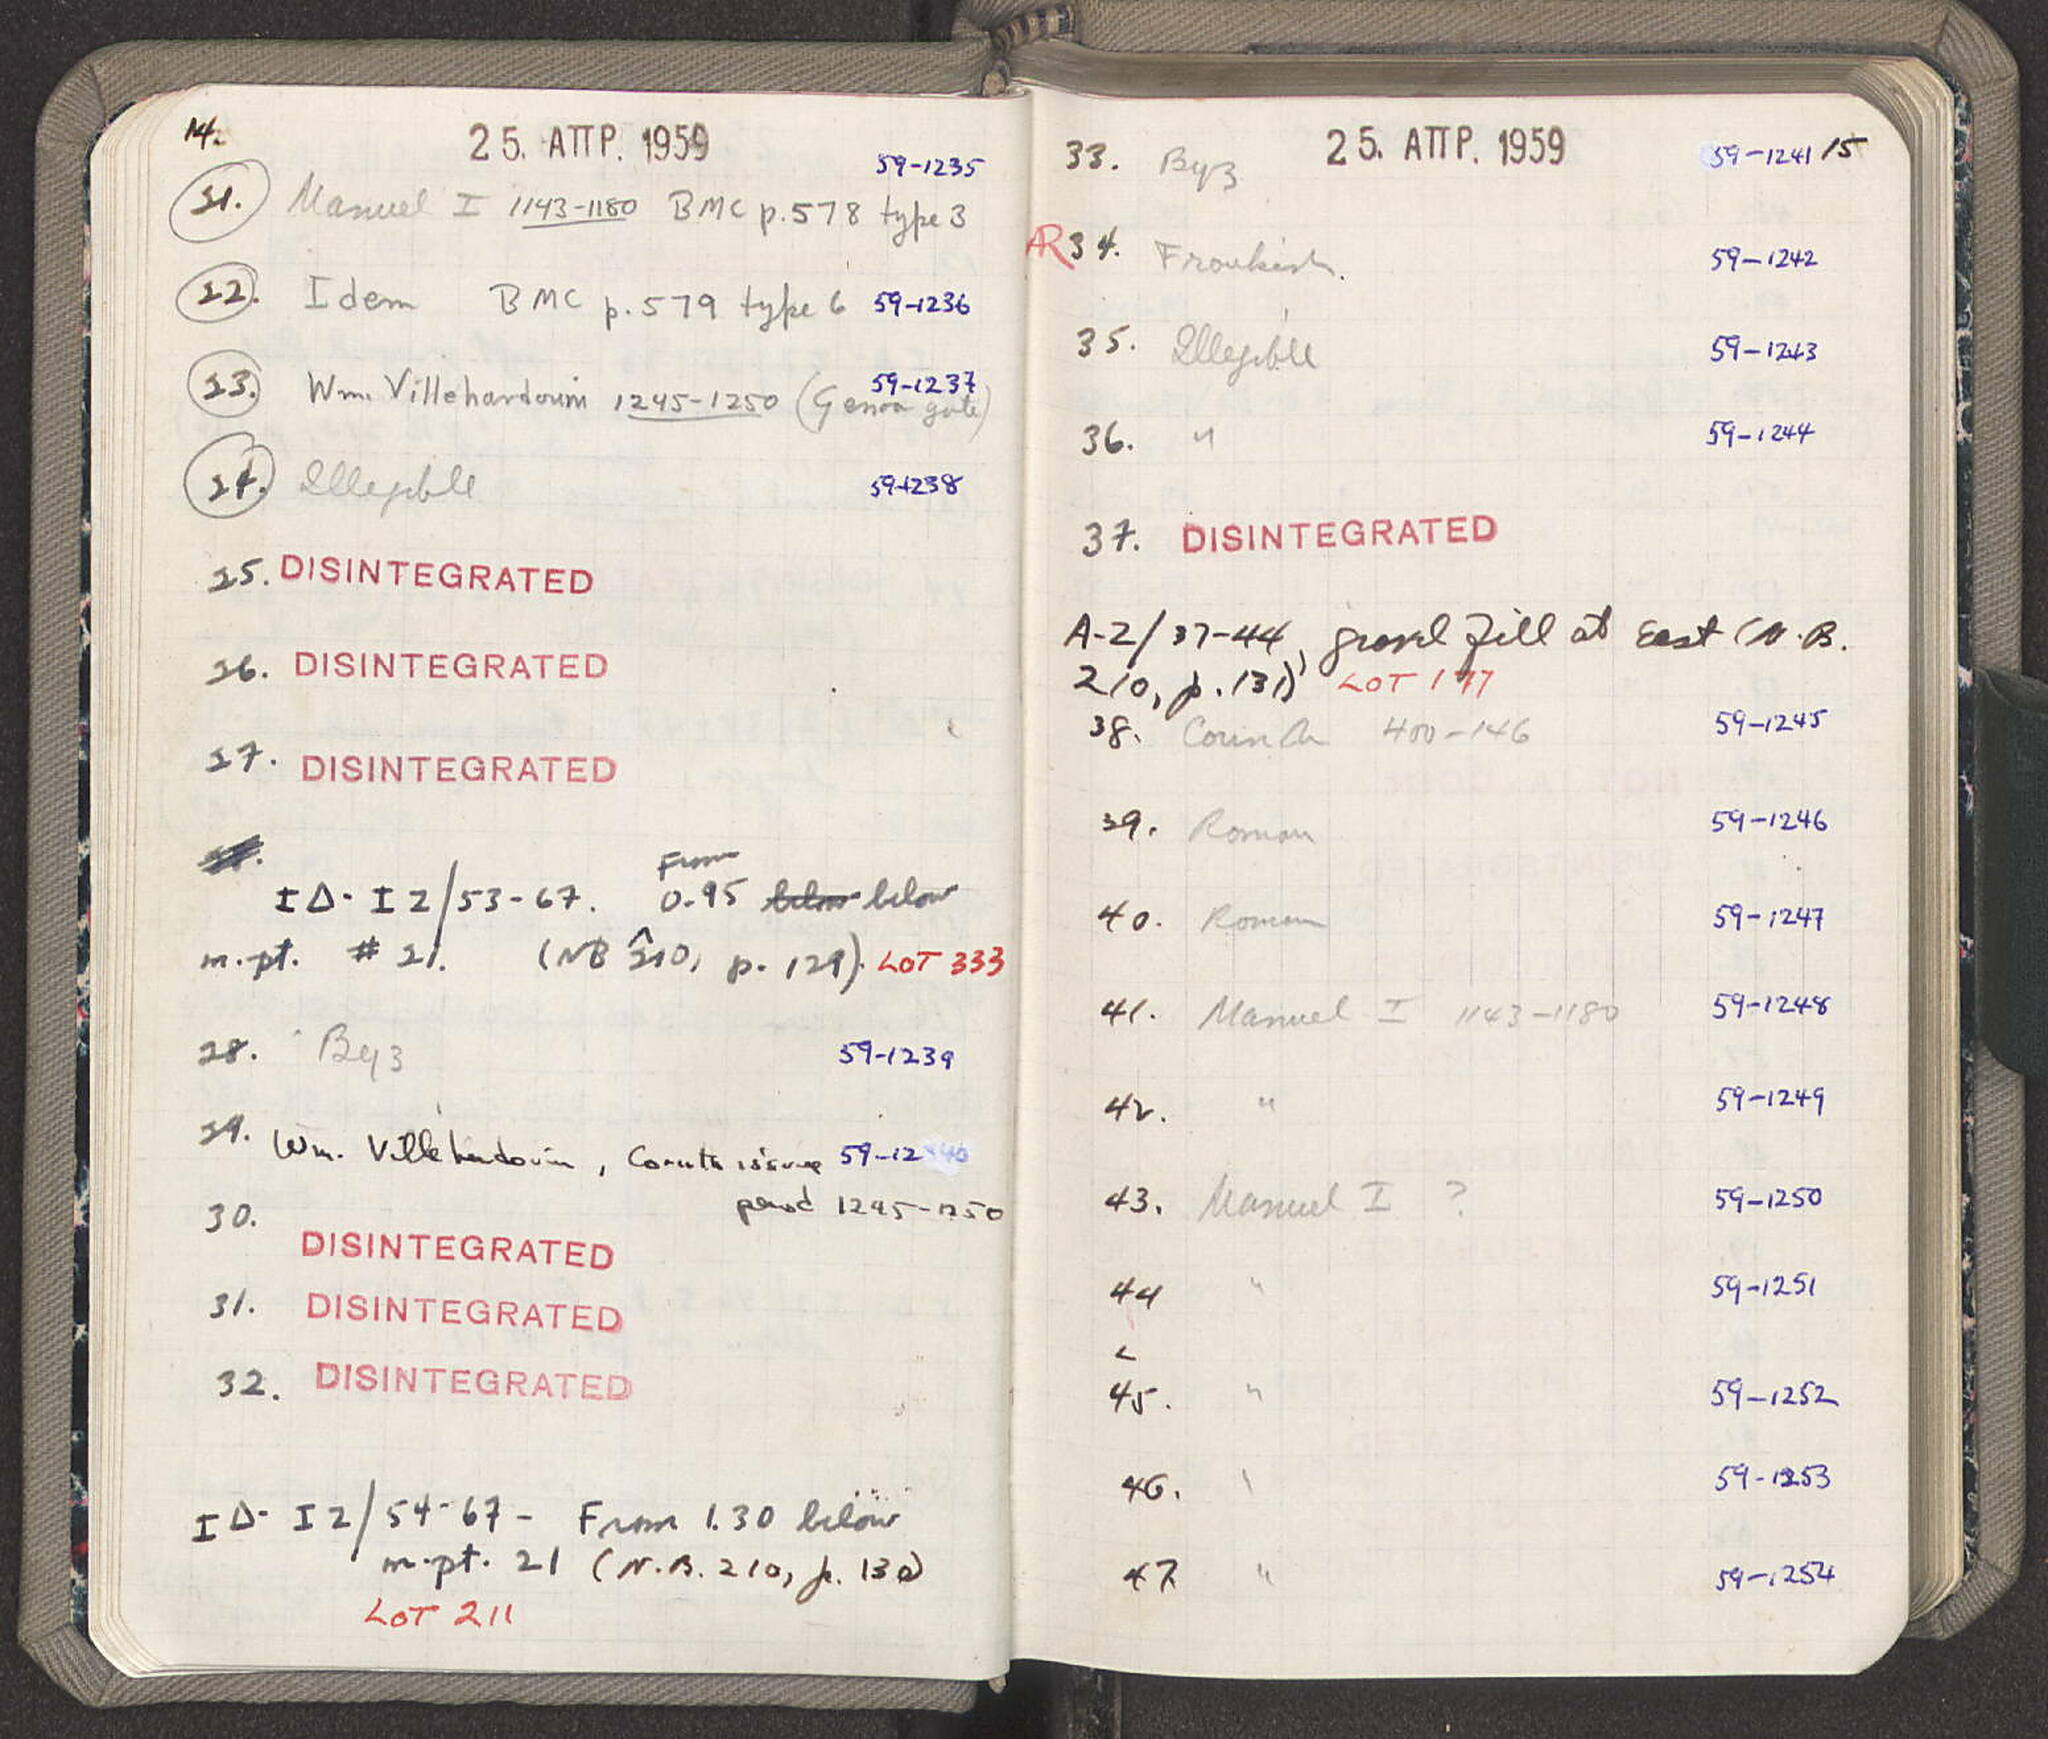 14.
25. ΑΠΡ. 1959
59-1235
21. Manuel I 1143-1180 BMC p.578 type 3
22. Idem BMC p.579 type 6 59-1236
59-1237
23. Wm. Villehardouin 1245-1250 (Genoa gate)
24. Illegible 59-1238
25. DISINTEGRATED
26. DISINTEGRATED
27. DISINTEGRATED
28.
From
ΙΔ- ΙΖ/53-67. 0.95 below below
m.pt. # 21. (NB 210, p. 129). LOT 333
28. Byz 59-1239
29. Wm. Villehardouin, Corinth issue 59-1240
period 1245-1250
30.
DISINTEGRATED
31. DISINTEGRATED
32. DISINTEGRATED
ΙΔ- ΙΖ/54-67- From 1.30 below
m.pt. 21 (N.B. 210, p. 130)
LOT 211
25. ΑΠΡ. 1959
15
33. Byz 59-1241
AR 34. Frankish. 59-1242
35. Illegible 59-1243
36. " 59-1244
37. DISINTEGRATED
A-Z/37-44, gravel fill at East (N.B.
210, p.131) LOT
38. Corinth 400-146 59-1245
39. Roman 59-1246
40. Roman 59-1247
41. Manuel I 1143-1180 59-1248
42. " 59-1249
43. Manuel I ? 59-1250
44 " 59-1251
45. " 59-1252
46. " 59-1253
47. " 59-1254